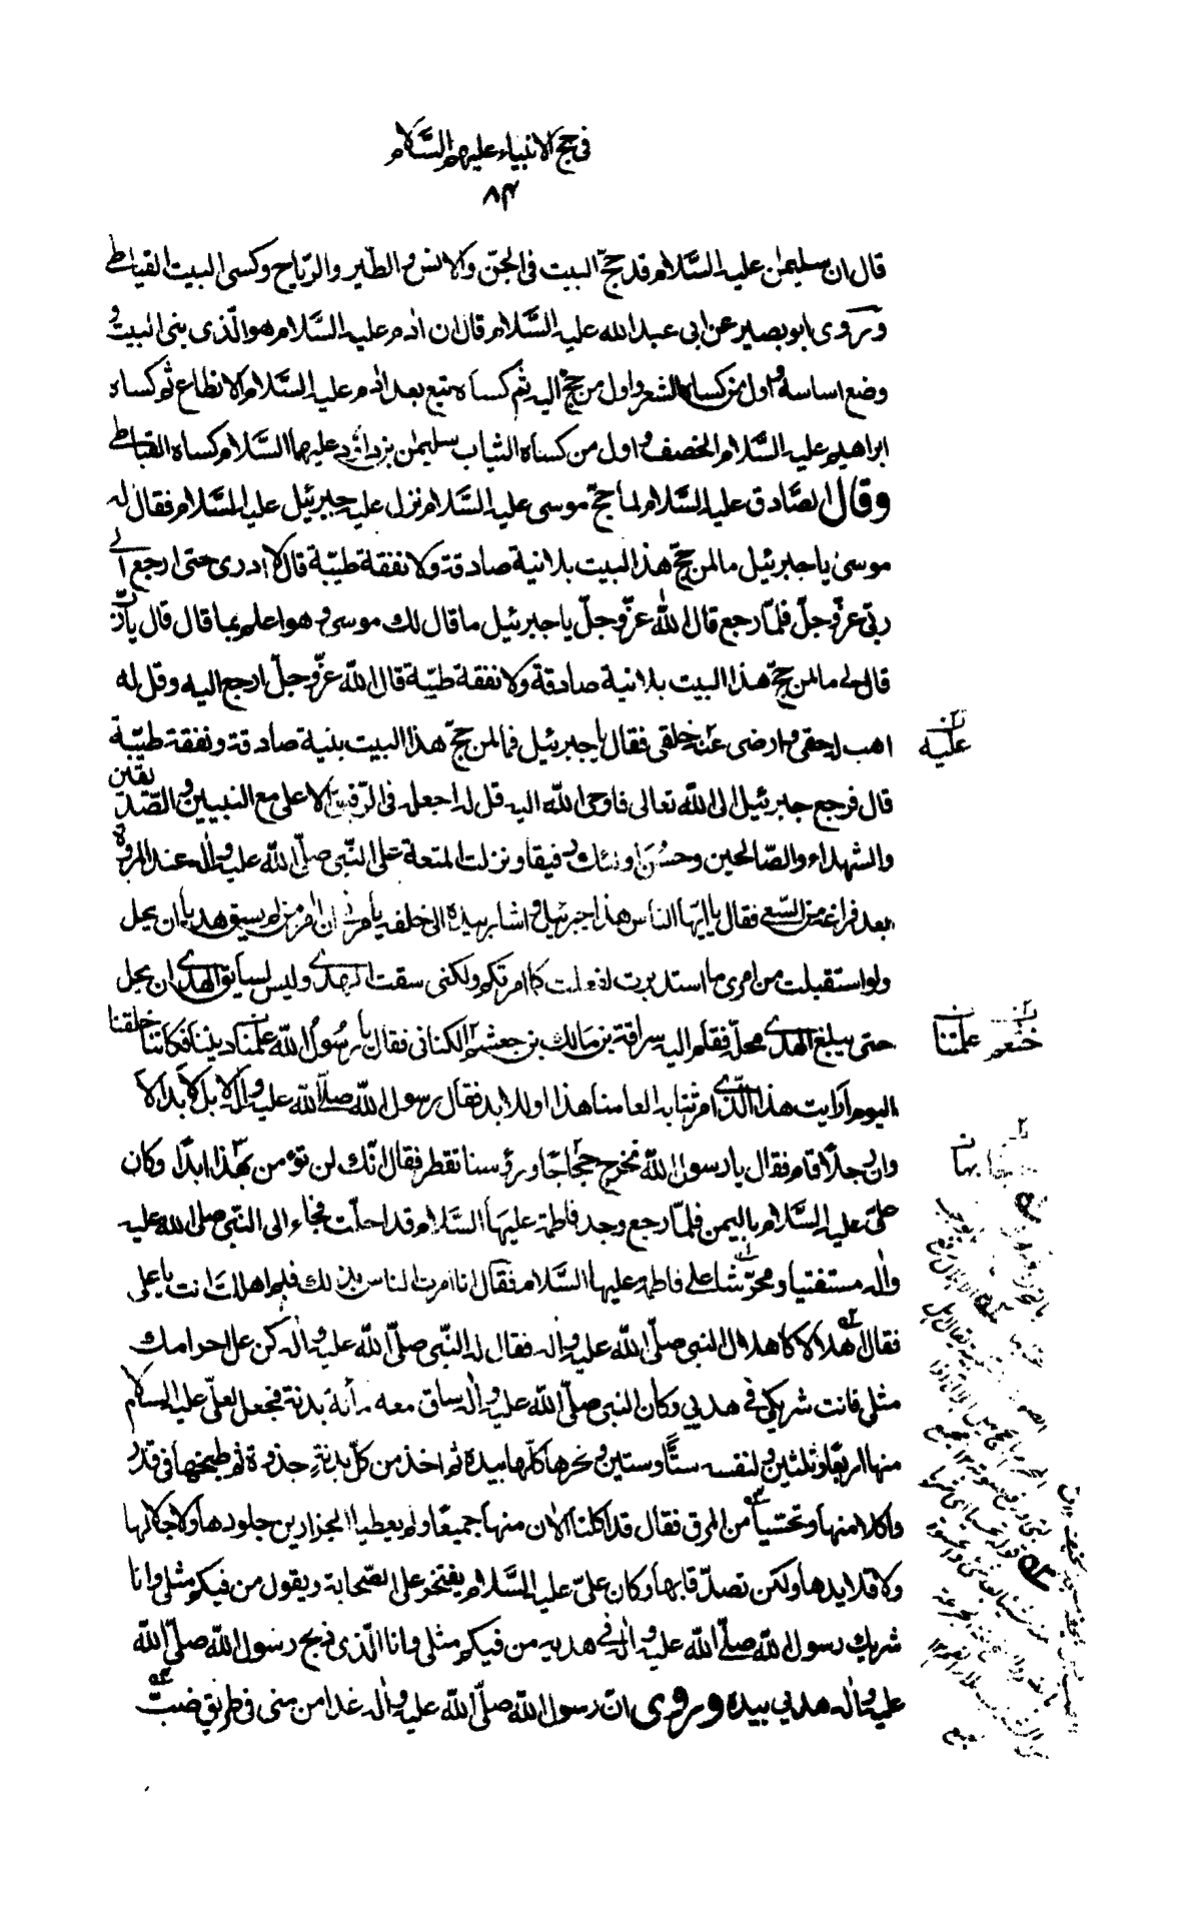 في حج الانبياء عليهم السَّلام
٨٤
قال ان سليمن عليه السَّلام قد حجّ البيت في الجنّ والانس والطّير والرّياح وكسى البيت القباطي
وروى ابو بصير عن ابي عبد الله عليه السَّلام قال ان ادم عليه السَّلام هو الّذى بنى البيت و
وضع اساسه واول من كساه الشعر واول من حجّ اليه ثم كساه تبع بعد ادم عليه السَّلام الانطاع ثم كساه
ابراهيم عليه السَّلام الخصف واول من كساه الثياب سليمن بن داود عليهما السَّلام كساه القباطي
وقال الصَّادق عليه السَّلام لما حجّ موسى عليه السَّلام نزل عليه جبرئيل عليه السَّلام فقال له
موسىٰ يا جبرئيل ما لمن حجّ هذا البيت بلا نية صادقة ولا نفقة طيّبة قال لا ادرى حتى ارجع الى
ربّي عزّ وجلّ فلمّا رجع قال الله عزّ وجلّ يا جبرئيل ما قال لك موسى وهو اعلم بما قال قال يا ربّ
قال لي ما لمن حجّ هذا البيت بلا نية صادقة ولا نفقة طيّبة قال الله عزّ وجلّ ارجع اليه وقل له
اهب له حقي وارضى عنه خلقي فقال يا جبرئيل فما لمن حجّ هذا البيت بنية صادقة ونفقة طيّبة
عليه
قال فرجع جبرئيل الى الله تعالى فاوحى الله اليه قل له اجعله في الرّفيق الاعلى مع النبيين والصّدّيقين
والشهداء والصّالحين وحسُن اولئك رفيقا ونزلت المتعة على النّبي صلّى الله عليه واٰله عند المروة
بعد فراغه من السّعي فقال يا ايّها الناس هذا جبرئيل واشار بيده الى خلفه يأمرني ان اٰمر من لم يسق هديا ان يحل
ولو استقبلت من امرى ما استدبرت لفعلت كما امرتكم ولكني سقت الهدى وليس لسايق الهدى ان يحل
حتى يبلغ الهدى محلّه فقام اليه سراقة بن مالك بن جعشم الكناني فقال يا رسُول الله علمنا ديننا فكاننا خلقنا
خثعم علمتنا
اليوم ارايت هذا الّذى امرتنا به العامنا هذا او للابد فقال رسول الله صلّى الله عليه واٰله لا بل لابد الا
وان رجلا قام فقال يا رسول الله نخرج حجّاجا ورؤسنا تقطر فقال انّك لن تؤمن بهذا ابدًا وكان
بها
عليّ عليه السَّلام باليمن فلمّا رجع وجد فاطمة عليها السَّلام قد احلّت فجاء الى النبّي صلى الله عليه
واٰله مستفتيا ومحرّشا على فاطمة عليها السَّلام فقال انا امرت الناس بذلك فبم اهللت انت يا علي
فقال اهلالا كاهلال النبي صلّى الله عليه واٰله فقال له النّبي صلّى الله عليه واٰله كن على احرامك
مثلي فانت شريكي في هديي وكان النبي صلّى الله عليه واٰله ساق معه مأئة بدنة فجعل لعليّ عليه السلام
منها اربعًا وثلثين ولنفسه ستًّا وستين ونحرها كلّها بيده ثم اخذ من كلّ بدنةٍ جذوة ثم طبخها في قدر
واكلا منها وتحسّيا من المرق فقال قد اكلنا الان منها جميعًا ولم يعطيا الجزارين جلودها ولا جلالها
ولا قلايدها ولكن تصدّقا بها وكان عليّ عليه السَّلام يفتخر على الصّحابة ويقول من فيكم مثلي وانا
شريك رسول الله صلّى الله عليه واٰله في هديه من فيكم مثلي وانا الّذى ذبح رسول الله صلّى الله
عليه واٰله هديي بيده وروى انّ رسول الله صلّى الله عليه واٰله غدا من منى في طريق ضبّ